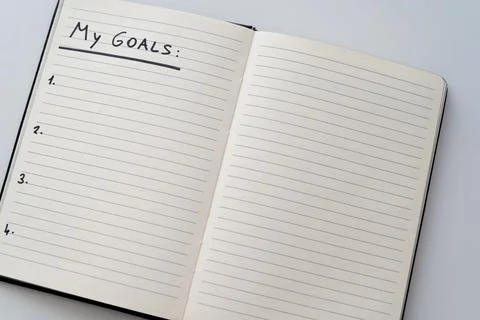 My GOALS:
1.
2.
3.
4.